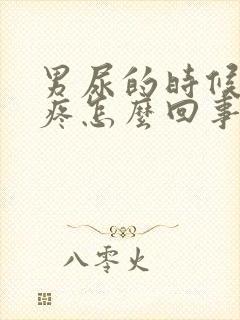 男尿的時候
疼怎麼回事
八零火